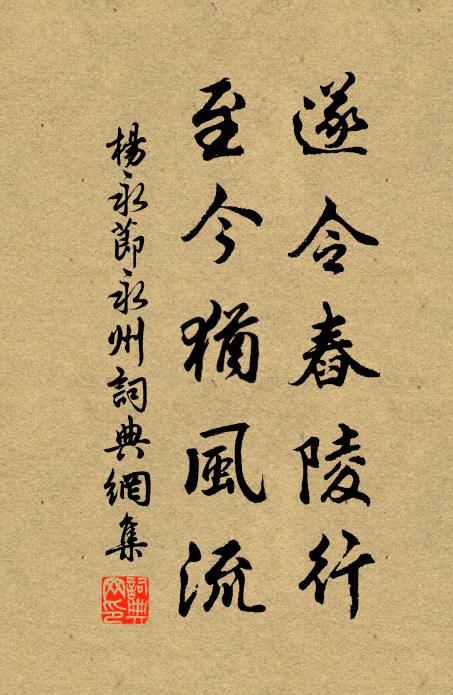 遂令舂陵行
至今猶風流
楊永節永州詞典網集
詞典
网印